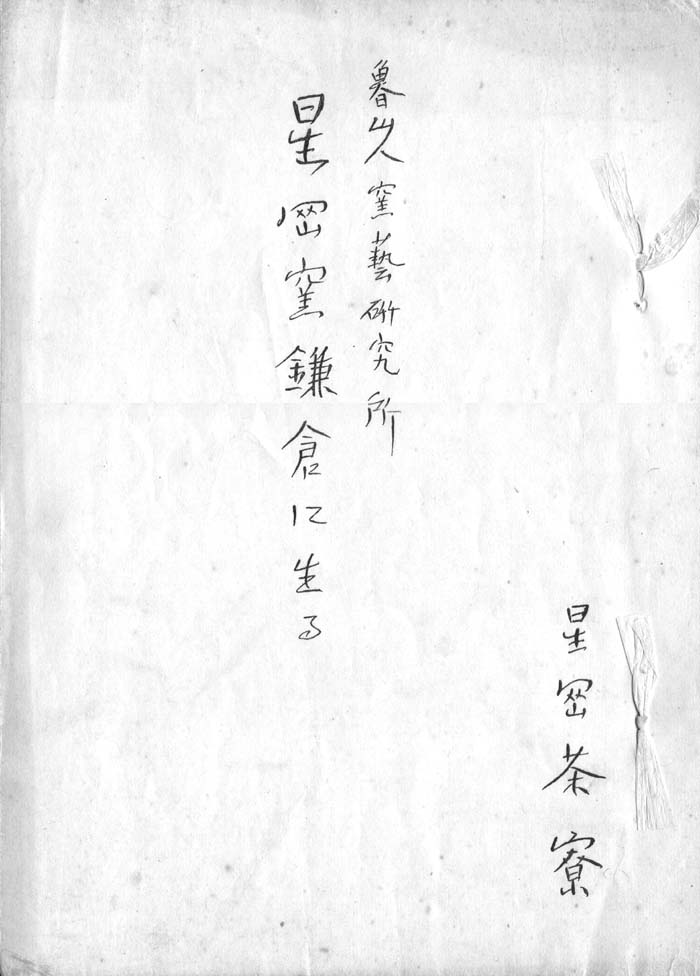 星岡茶寮
魯山人窯藝研究所
星岡窯鎌倉に生る